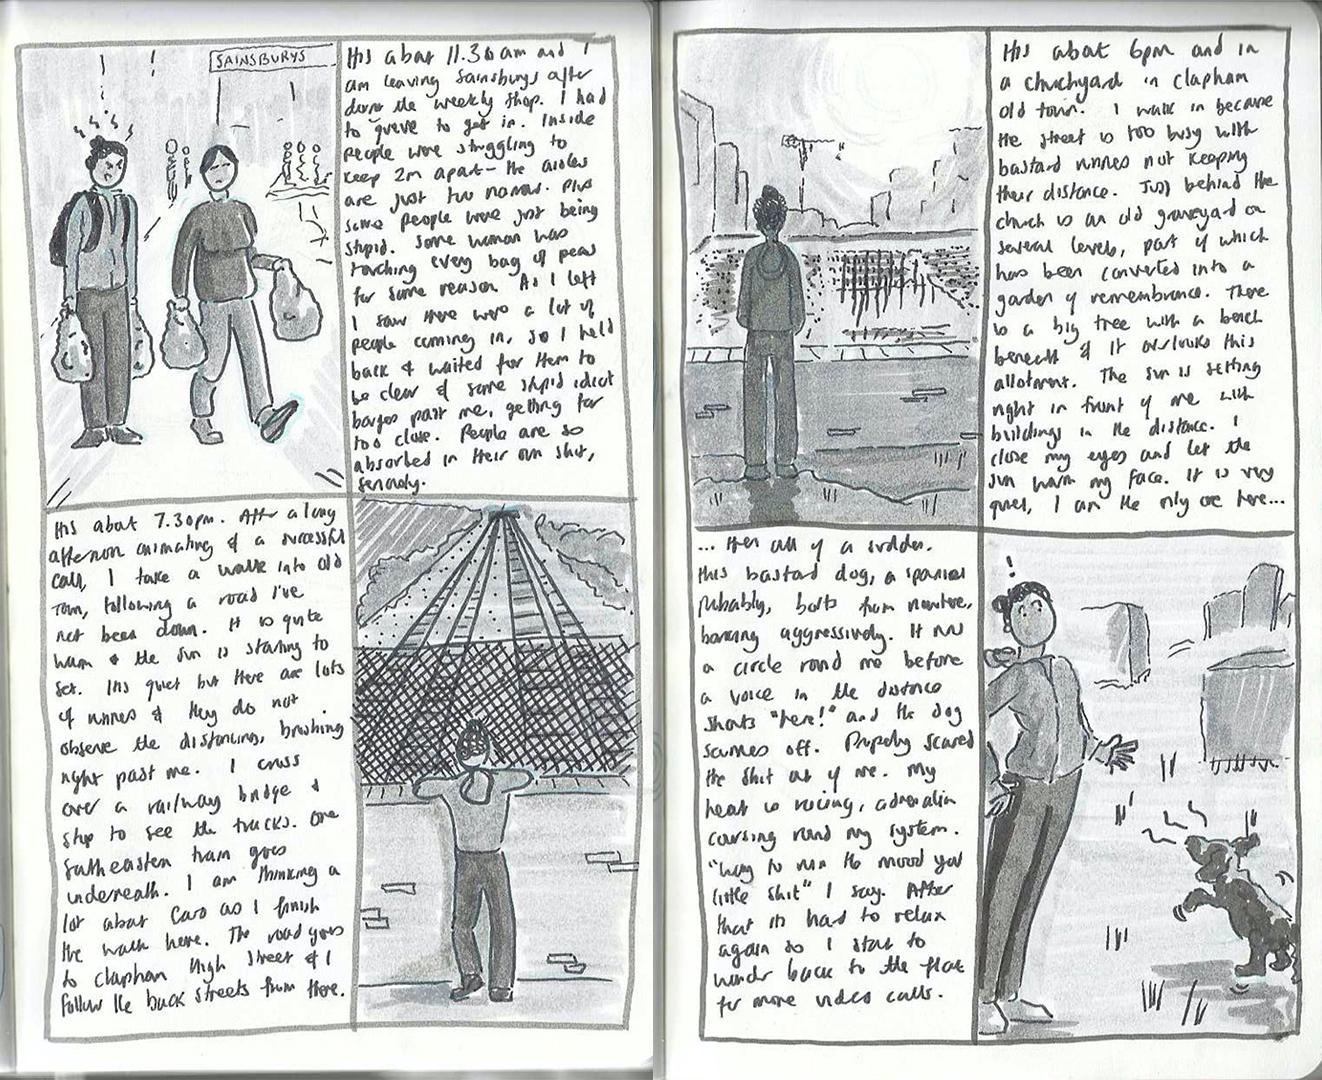 SAINSBURYS
Its about 11.30am and I
am leaving Sainsburys after
doing the weekly shop. I had
to queue to get in. Inside
people were struggling to
keep 2m apart - the aisles
are just too narrow. Plus
some people were just being
stupid. Some woman was
touching every bag of peas
for some reason. As I left
I saw there were a lot of
people coming in, so I held
back & waited for them to
be clear & some stupid idiot
barges past me, getting far
too close. People are so
absorbed in their own shit,
seriously.
Its about 7.30pm. After a long
afternoon animating & a successful
call, I take a walk into old
town, following a road I've
not been down. It is quite
warm & the sun is starting to
set. Its quiet but there are lots
of runners & they do not
observe the distancing, brushing
right past me. I cross
over a railway bridge &
stop to see the tracks. One
Southeastern train goes
underneath. I am thinking a
lot about Caro as I finish
the walk here. The road goes
to Clapham High Street & I
follow the back streets from there.
Its about 6pm and in
a churchyard in Clapham
old town. I walk in because
the street is too busy with
bastard runners not keeping
their distance. Just behind the
church is an old graveyard on
several levels, part of which
has been converted into a
garden of remembrance. There
is a big tree with a bench
beneath & it overlooks this
allotment. The sun is setting
right in front of me with
buildings in the distance. I
close my eyes and let the
sun warm my face. It is very
quiet, I am the only one here...
... then all of a sudden.
this bastard dog, a spaniel
probably, bolts from nowhere,
barking aggressively. It runs
a circle round me before
a voice in the distance
shouts "here!" and the dog
scurries off. Properly scared
the shit out of me. My
heart is racing, adrenalin
coursing round my system.
"Way to ruin the mood you
little shit" I say. After
that its hard to relax
again so I start to
wander back to the flat
for more video calls.
!